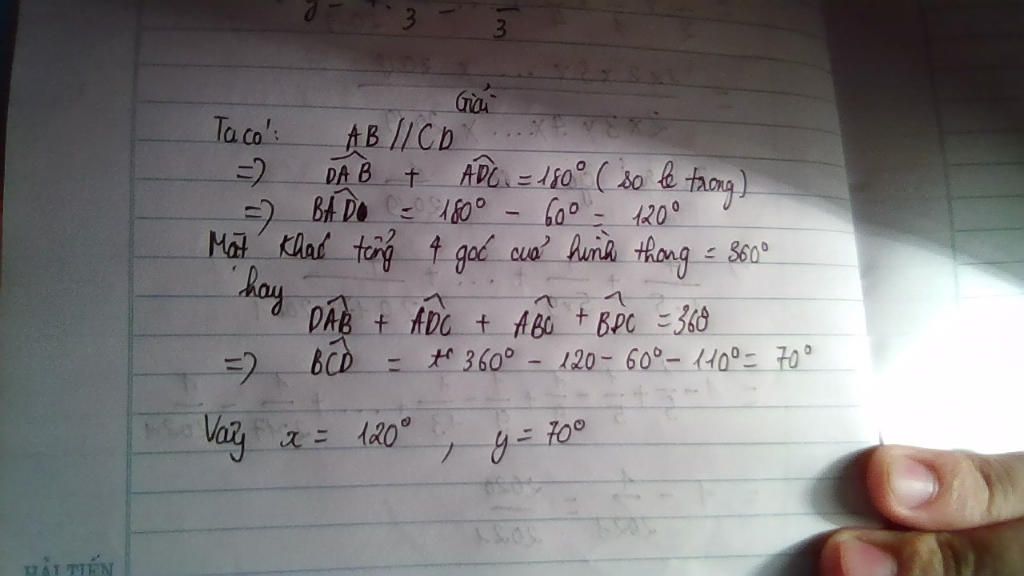 3 - 3
Giải
Ta có: AB // CD
=> DAB + ADC = 180° (so le trong)
=> BAD = 180° - 60° = 120°
Mặt khác tổng 4 góc của hình thang = 360°
hay
DAB + ADC + ABC + BDC = 360
=> BCD = 360° - 120 - 60° - 110° = 70°
Vậy x = 120°, y = 70°
HẢI TIẾN